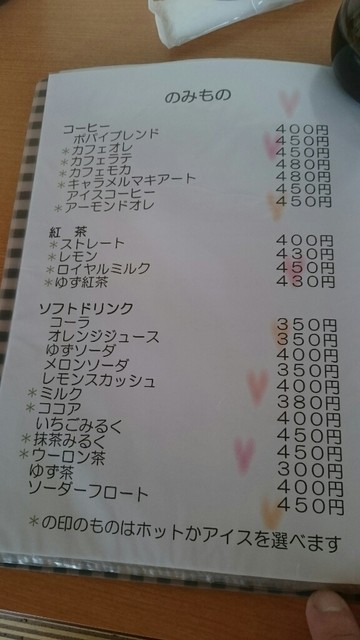 のみもの
コーヒー
ポパイブレンド 400円
*カフェオレ 450円
*カフェラテ 450円
*カフェモカ 480円
*キャラメルマキアート 480円
アイスコーヒー 450円
*アーモンドオレ 450円
紅 茶
*ストレート 400円
*レモン 430円
*ロイヤルミルク 450円
*ゆず紅茶 430円
ソフトドリンク
コーラ 350円
オレンジジュース 350円
ゆずソーダ 400円
メロンソーダ 350円
レモンスカッシュ 400円
*ミルク 380円
*ココア 400円
いちごみるく 450円
*抹茶みるく 450円
*ウーロン茶 300円
ゆず茶 400円
ソーダーフロート 450円
*の印のものはホットかアイスを選べます